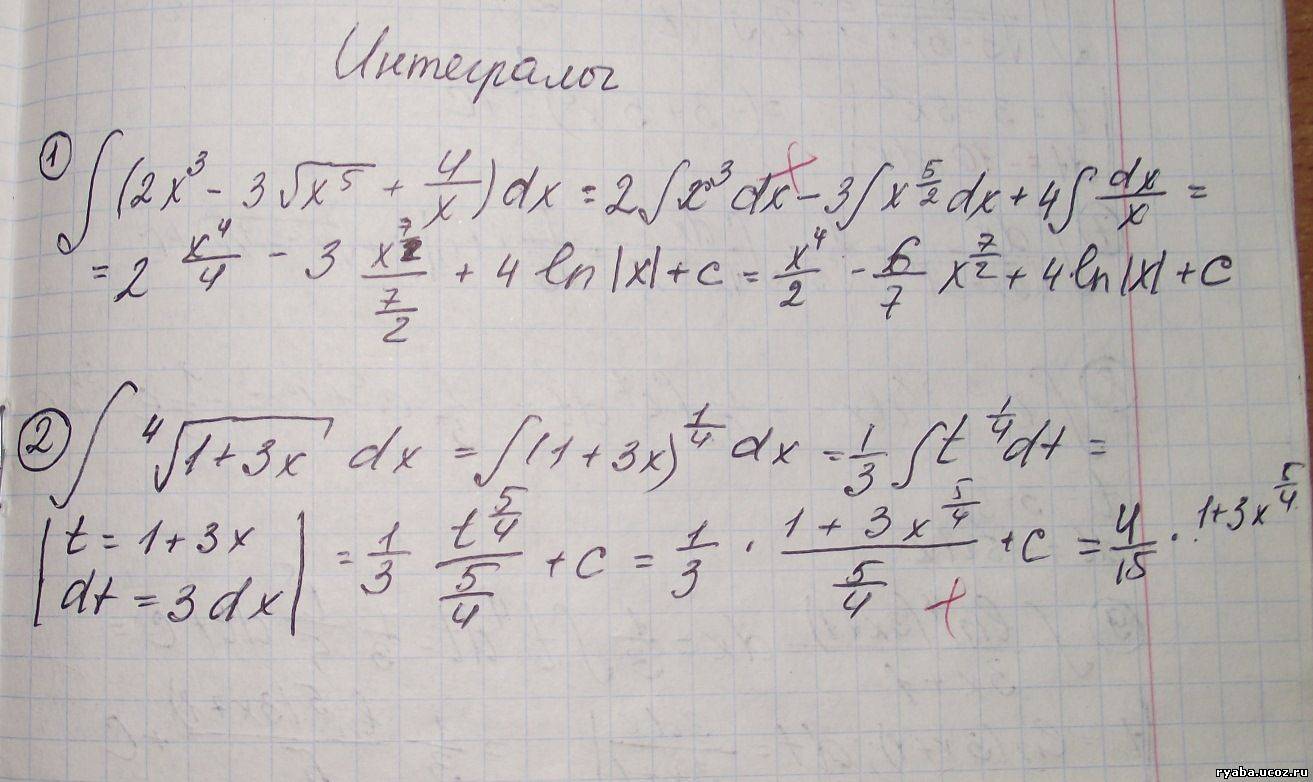 Интегралы
① ∫(2x³ - 3√x⁵ + 4/x)dx = 2∫x³dx - 3∫x^(5/2)dx + 4∫dx/x =
= 2 x⁴/4 - 3 x^(7/2)/(7/2) + 4 ln|x| + c = x⁴/2 - 6/7 x^(7/2) + 4 ln|x| + c
② ∫ ⁴√(1+3x) dx = ∫(1+3x)^(1/4) dx = 1/3 ∫t^(1/4)dt =
|t = 1+3x
dt = 3dx| = 1/3 t^(5/4)/(5/4) + c = 1/3 · (1+3x^(5/4))/(5/4) + c = 4/15 · 1+3x^(5/4)
ryaba.ucoz.ru